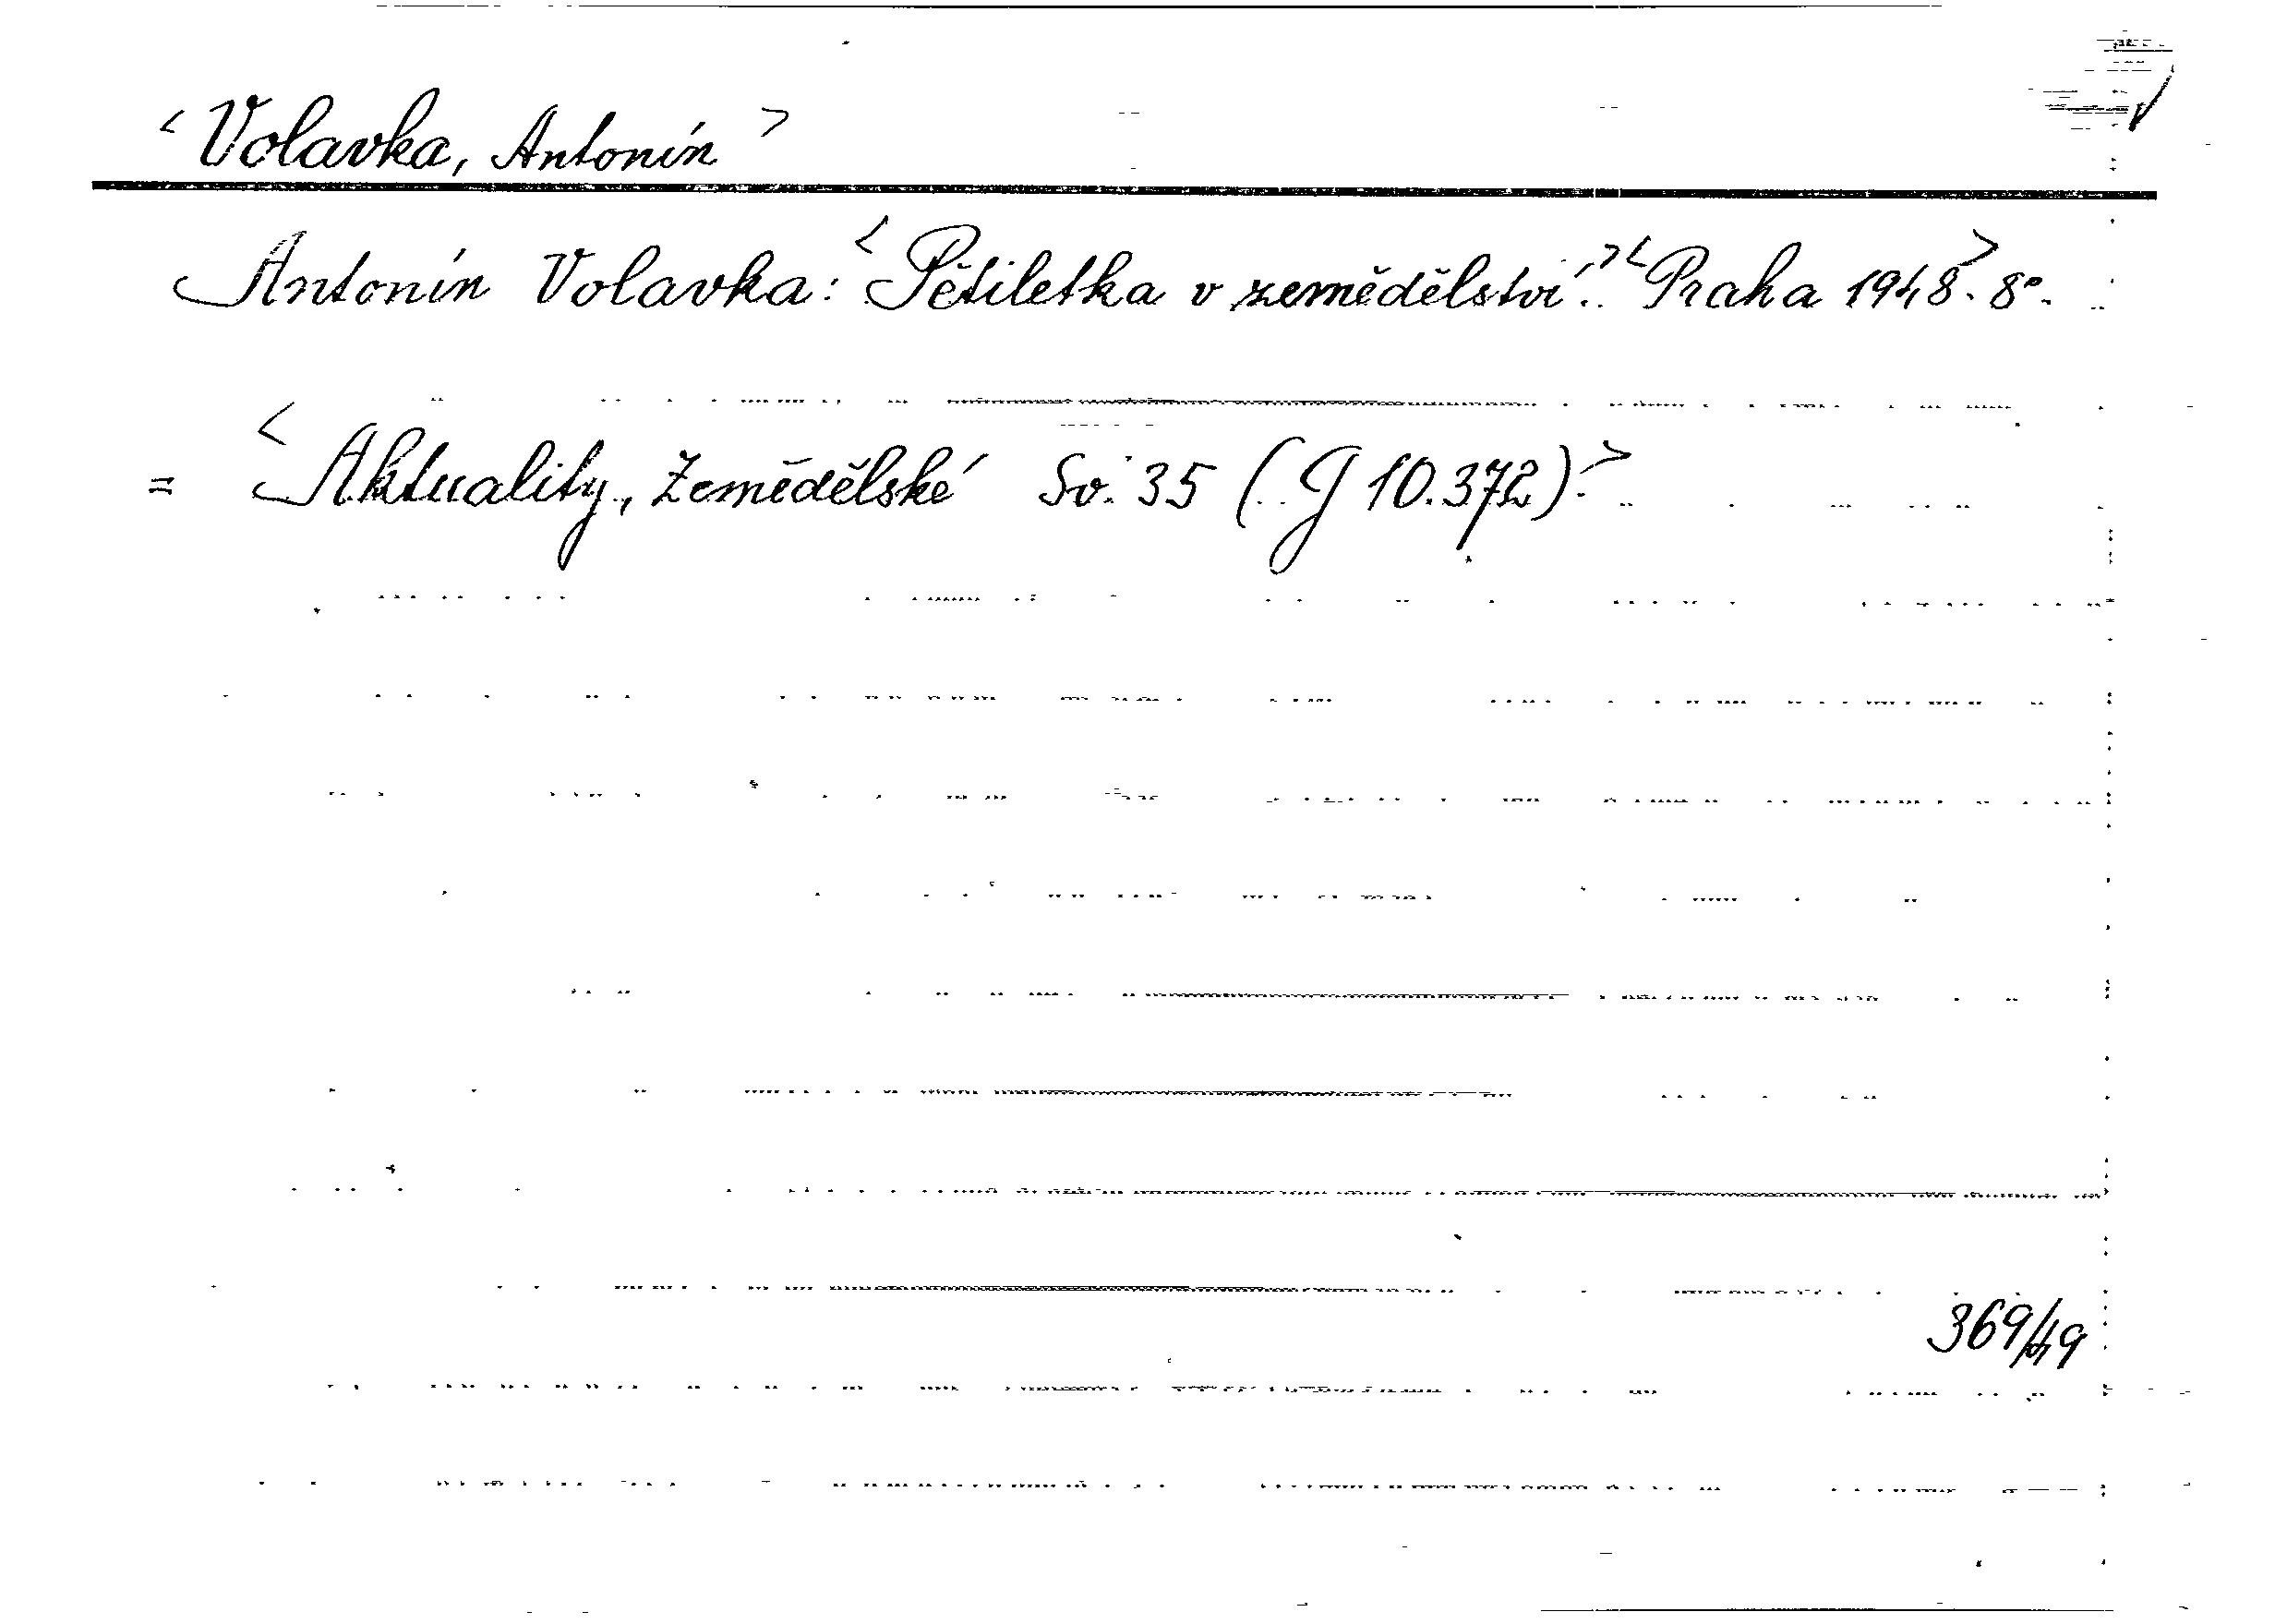 <Volavka, Antonín>
Antonín Volavka: <Pětiletka v zemědělství.><Praha 1948>. 8°.
= <Aktuality, Zemědělské Sv. 35 (G 10.372).>
369/49